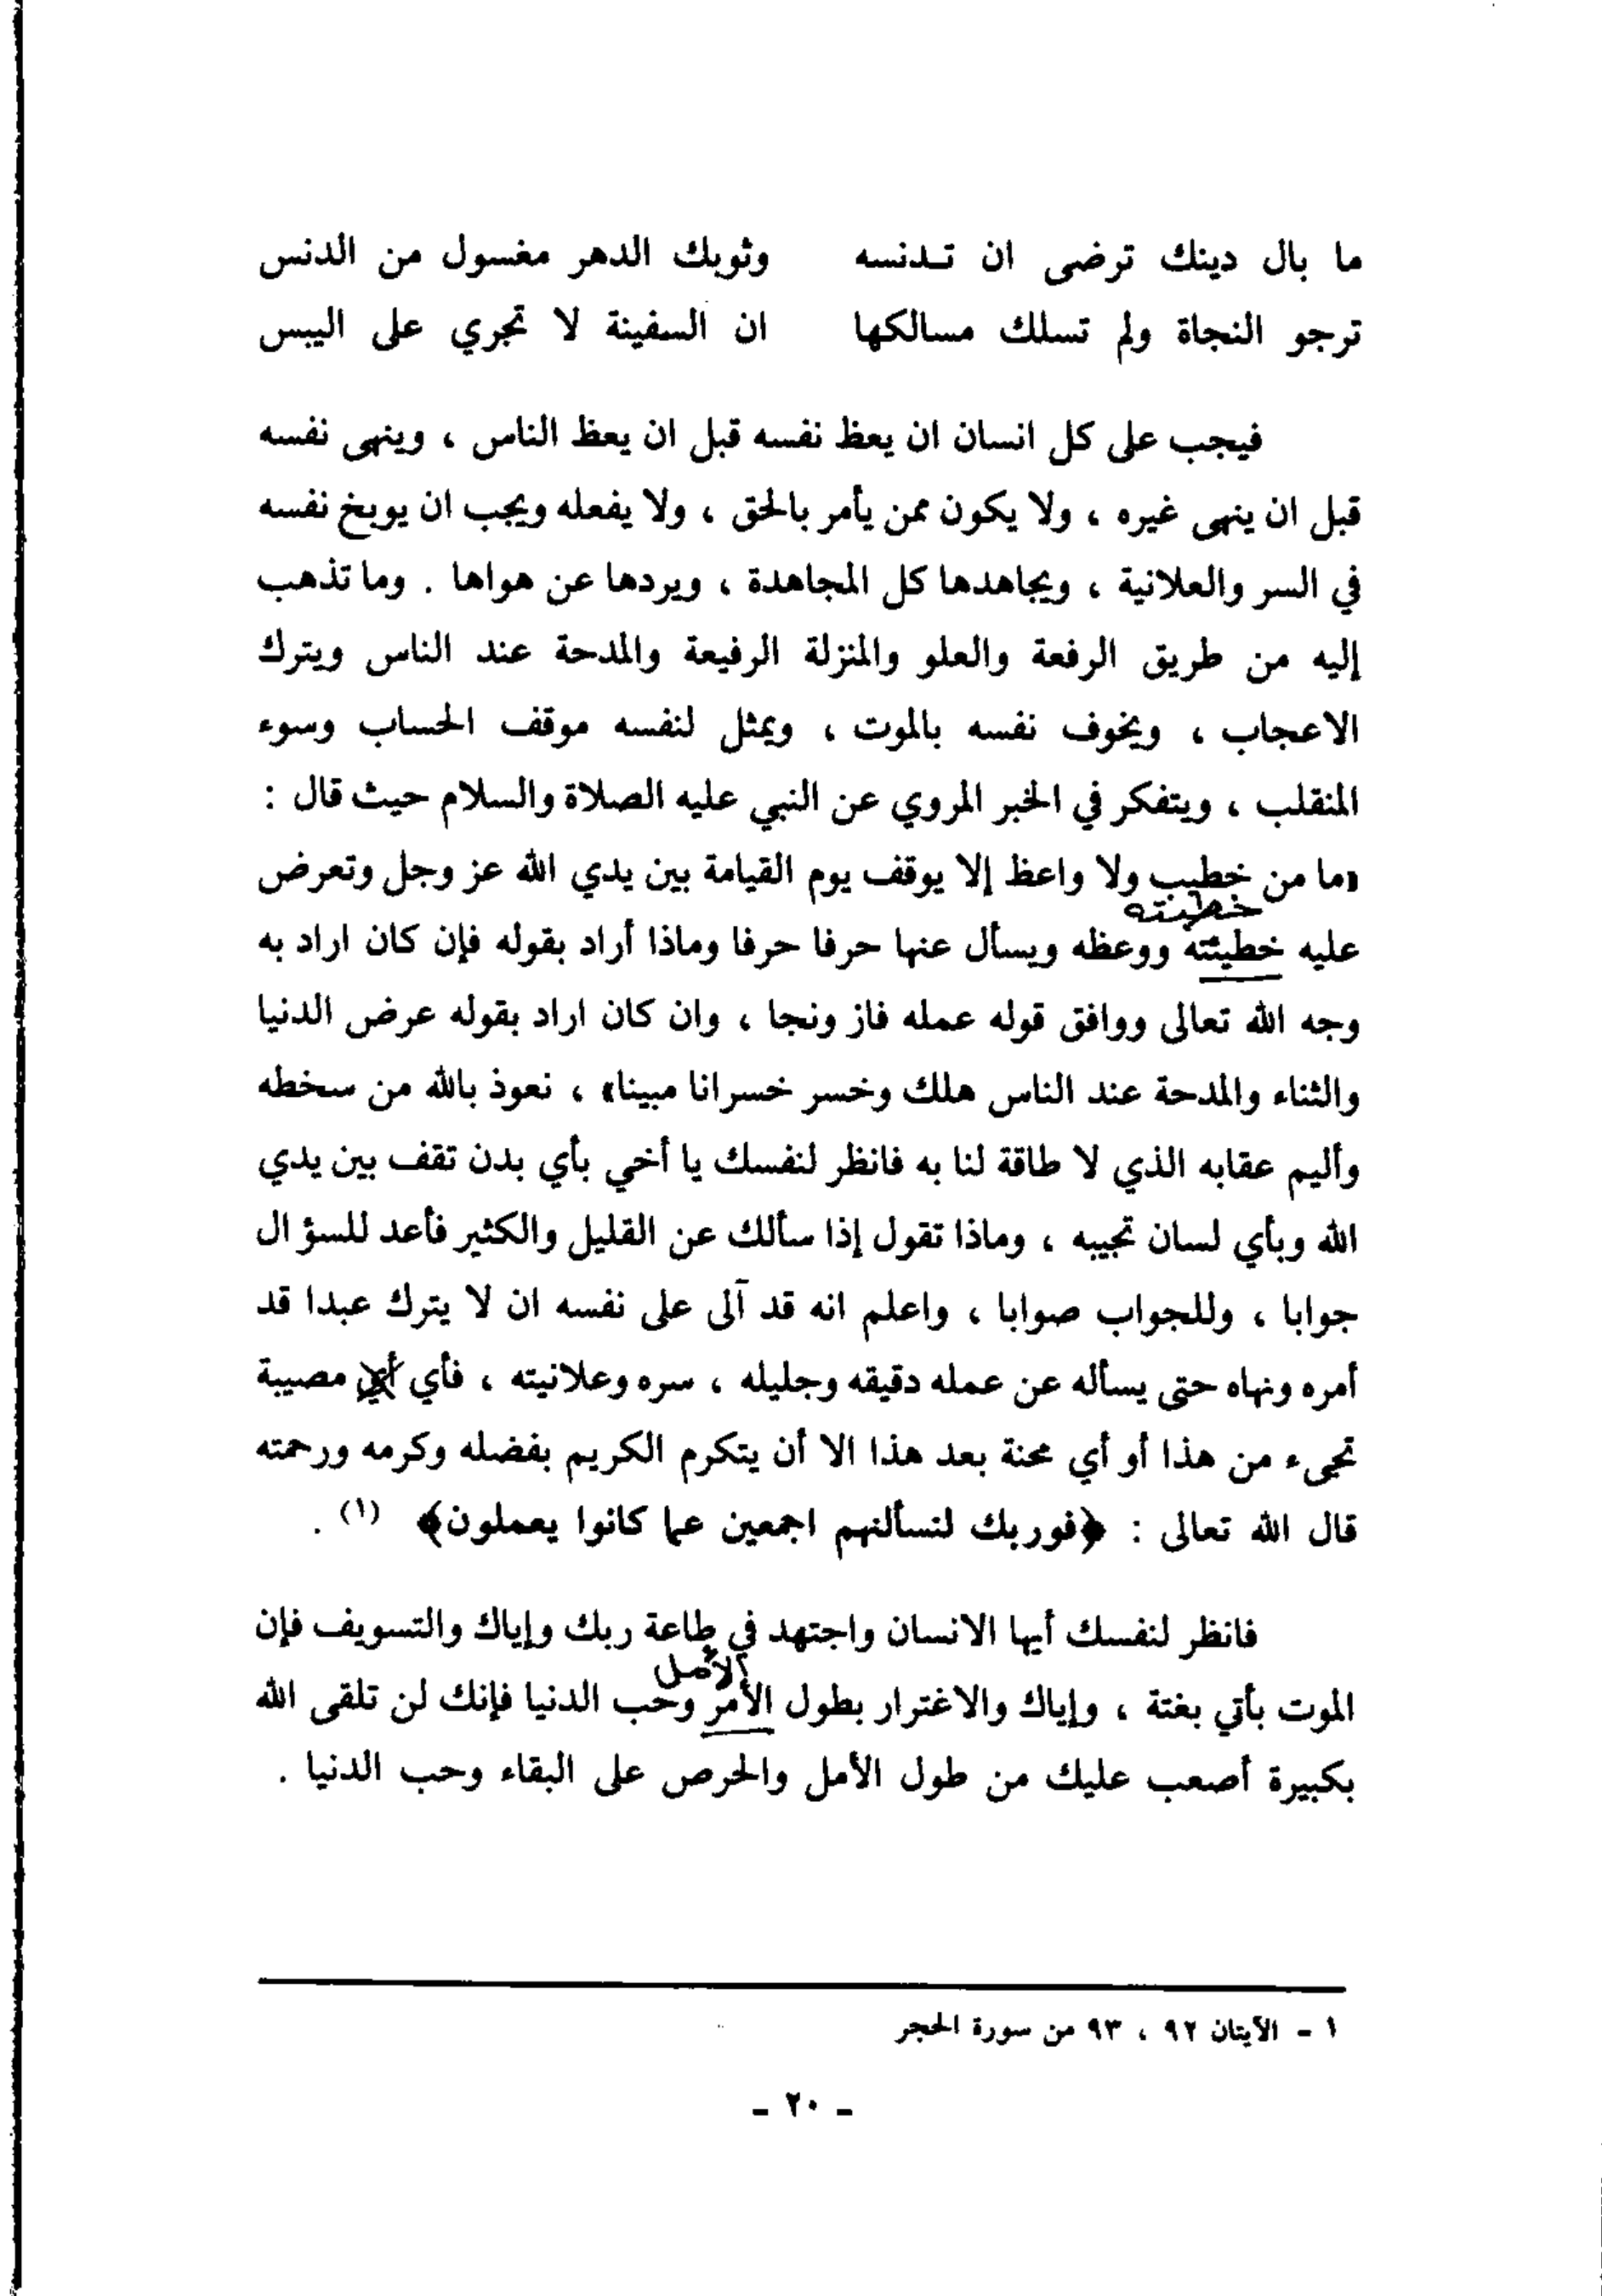 ما بال دينك ترضى ان تـدنسه وثوبك الدهر مغسول من الدنس
ترجو النجاة ولم تسلك مسالكها ان السفينة لا تجري على اليبس
فيجب على كل انسان ان يعظ نفسه قبل ان يعظ الناس ، وينهى نفسه
قبل ان ينهى غيره ، ولا يكون ممن يأمر بالحق ، ولا يفعله ويجب ان يوبخ نفسه
في السر والعلانية ، ويجاهدها كل المجاهدة ، ويردها عن هواها . وما تذهب
إليه من طريق الرفعة والعلو والمنزلة الرفيعة والمدحة عند الناس ويترك
الاعجاب ، ويخوف نفسه بالموت ، ويمثل لنفسه موقف الحساب وسوء
المنقلب ، ويتفكر في الخبر المروي عن النبي عليه الصلاة والسلام حيث قال :
«ما من خطيب ولا واعظ إلا يوقف يوم القيامة بين يدي الله عز وجل وتعرض
خطبته
عليه خطيئته ووعظه ويسأل عنها حرفا حرفا وماذا أراد بقوله فإن كان اراد به
وجه الله تعالى ووافق قوله عمله فاز ونجا ، وان كان اراد بقوله عرض الدنيا
والثناء والمدحة عند الناس هلك وخسر خسرانا مبينا» ، نعوذ بالله من سخطه
وأليم عقابه الذي لا طاقة لنا به فانظر لنفسك يا أخي بأي بدن تقف بين يدي
الله وبأي لسان تجيبه ، وماذا تقول إذا سألك عن القليل والكثير فأعد للسؤال
جوابا ، وللجواب صوابا ، واعلم انه قد آلى على نفسه ان لا يترك عبدا قد
أمره ونهاه حتى يسأله عن عمله دقيقه وجليله ، سره وعلانيته ، فأي أي مصيبة
تجيء من هذا أو أي محنة بعد هذا الا أن يتكرم الكريم بفضله وكرمه ورحمته
قال الله تعالى : ﴿فوربك لنسألنهم اجمعين عما كانوا يعملون﴾ (١) .
فانظر لنفسك أيها الانسان واجتهد في طاعة ربك وإياك والتسويف فإن
الأمل
الموت بأتي بغتة ، وإياك والاغترار بطول الأمر وحب الدنيا فإنك لن تلقى الله
بكبيرة أصعب عليك من طول الأمل والحرص على البقاء وحب الدنيا .
١ - الآيتان ٩٢ ، ٩٣ من سورة الحجر
- ٢٠ -